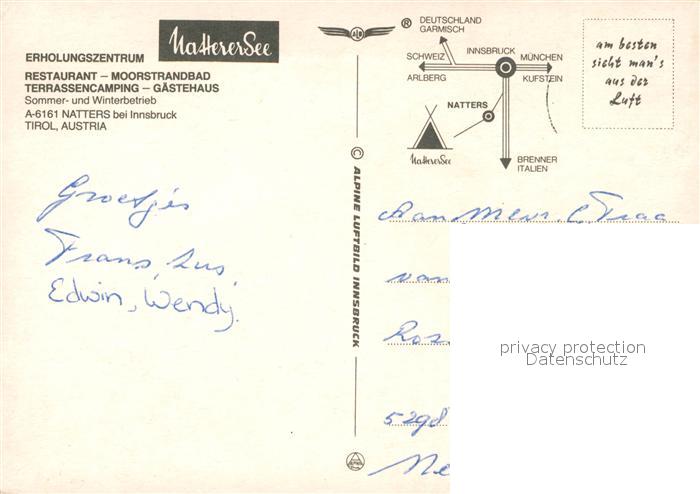 ERHOLUNGSZENTRUM NattererSee
RESTAURANT – MOORSTRANDBAD
TERRASSENCAMPING – GÄSTEHAUS
Sommer- und Winterbetrieb
A-6161 NATTERS bei Innsbruck
TIROL, AUSTRIA
®
DEUTSCHLAND
GARMISCH
SCHWEIZ
INNSBRUCK
MÜNCHEN
ARLBERG
KUFSTEIN
NATTERS
NattererSee
BRENNER
ITALIEN
am besten
sieht man's
aus der
Luft
© ALPINE LUFTBILD INNSBRUCK
Groetjes
Frans, Lus,
Edwin, Wendy.
Aan Mevr. C
van
5298
privacy protection
Datenschutz